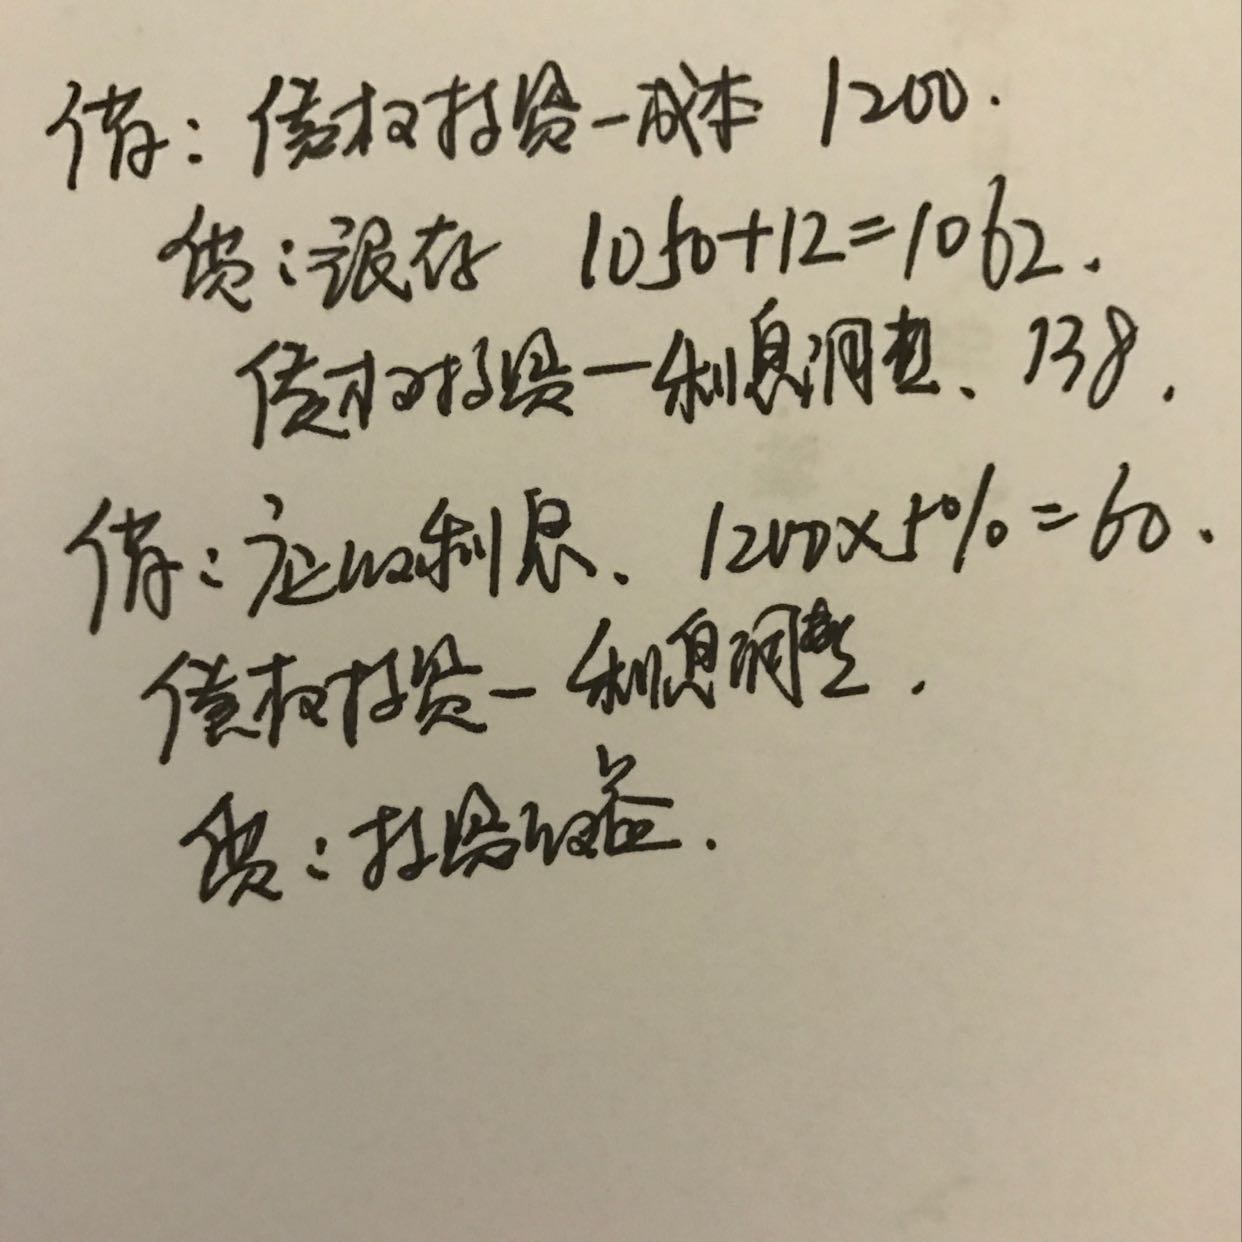 借：债权投资－成本 1200.
贷：银存 1050+12=1062.
债权投资－利息调整、138.
借：应收利息、1200×5%=60.
债权投资－利息调整.
贷：投资收益.